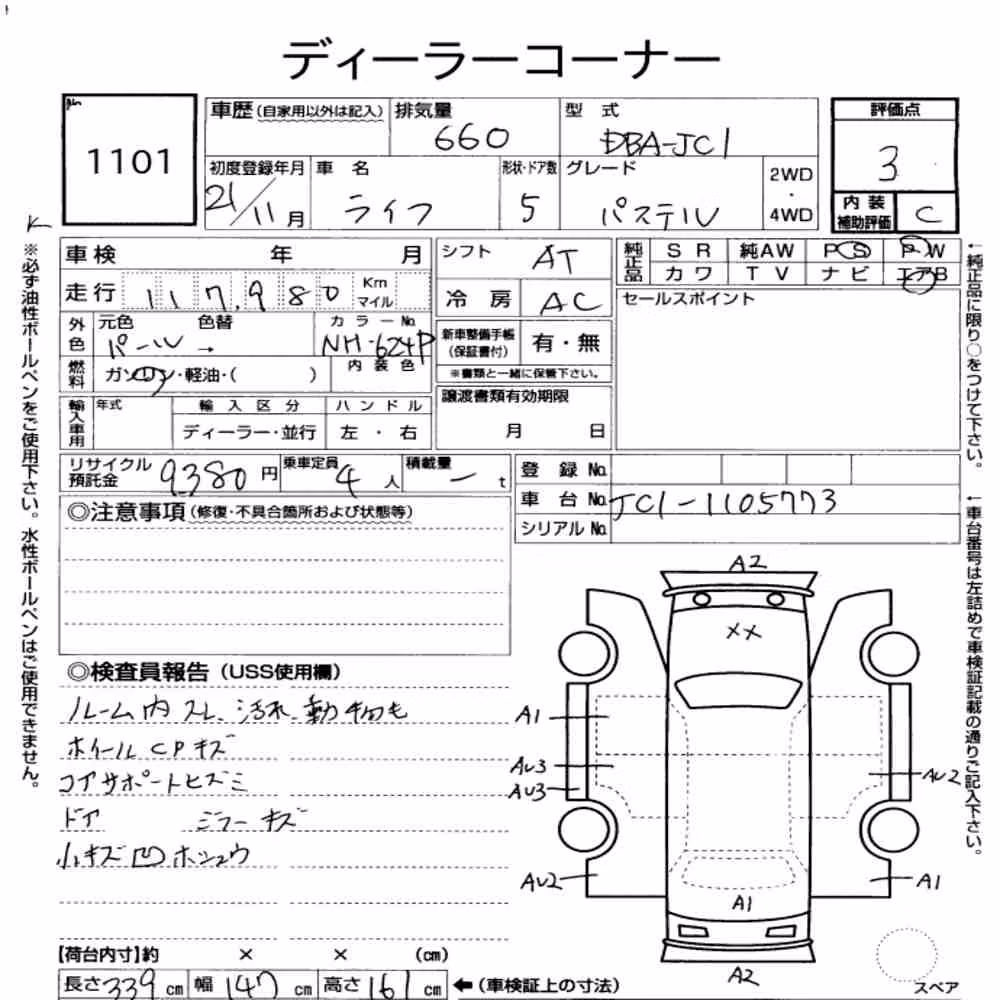 ディーラーコーナー
1101
車歴 (自家用以外は記入) 排気量 型式 評価点
660 DBA-JC1 3
初度登録年月 車名 形状・ドア数 グレード 2WD・4WD
21/11月 ライフ 5 パステル
内装補助評価 C
車検 年 月 シフト AT
純正品 SR 純AW PS PW
カワ TV ナビ エアB
走行 117,980 Km マイル 冷房 AC
セールスポイント
外色 元色 色替 カラーNo.
パール → NH-624P
新車整備手帳 (保証書付) 有・無
内装色
燃料 ガソリン・軽油・( )
※書類と一緒に保管下さい。
輸入車用 年式 輸入区分 ハンドル
ディーラー・並行 左・右
譲渡書類有効期限
月 日
リサイクル預託金 9380円 乗車定員 4人 積載量 ー t
登録No.
車台No. JC1-1105773
シリアルNo.
◎注意事項 (修復・不具合箇所および状態等)
◎検査員報告 (USS使用欄)
ルーム内スレ、汚れ、動物毛
ホイールCPキズ
コアサポートヒズミ
ドア ミラーキズ
小キズ凹ホシュウ
【荷台内寸】約 × × (cm)
長さ339cm 幅147cm 高さ161cm ←(車検証上の寸法)
A2
××
A1
AU3
AU3
AU2
AU2
A1
A1
A2
スペア
※必ず油性ボールペンをご使用下さい。水性ボールペンはご使用できません。
←純正品に限り○をつけて下さい。
←車台番号は左詰めで車検証記載の通りご記入下さい。